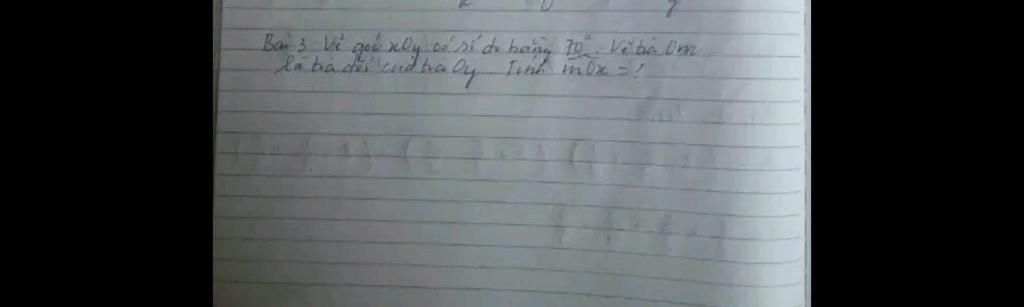 Bài 3 Vẽ góc xOy có số đo bằng 70°. Vẽ tia Om
là tia đối của tia Oy. Tính mOx = ?